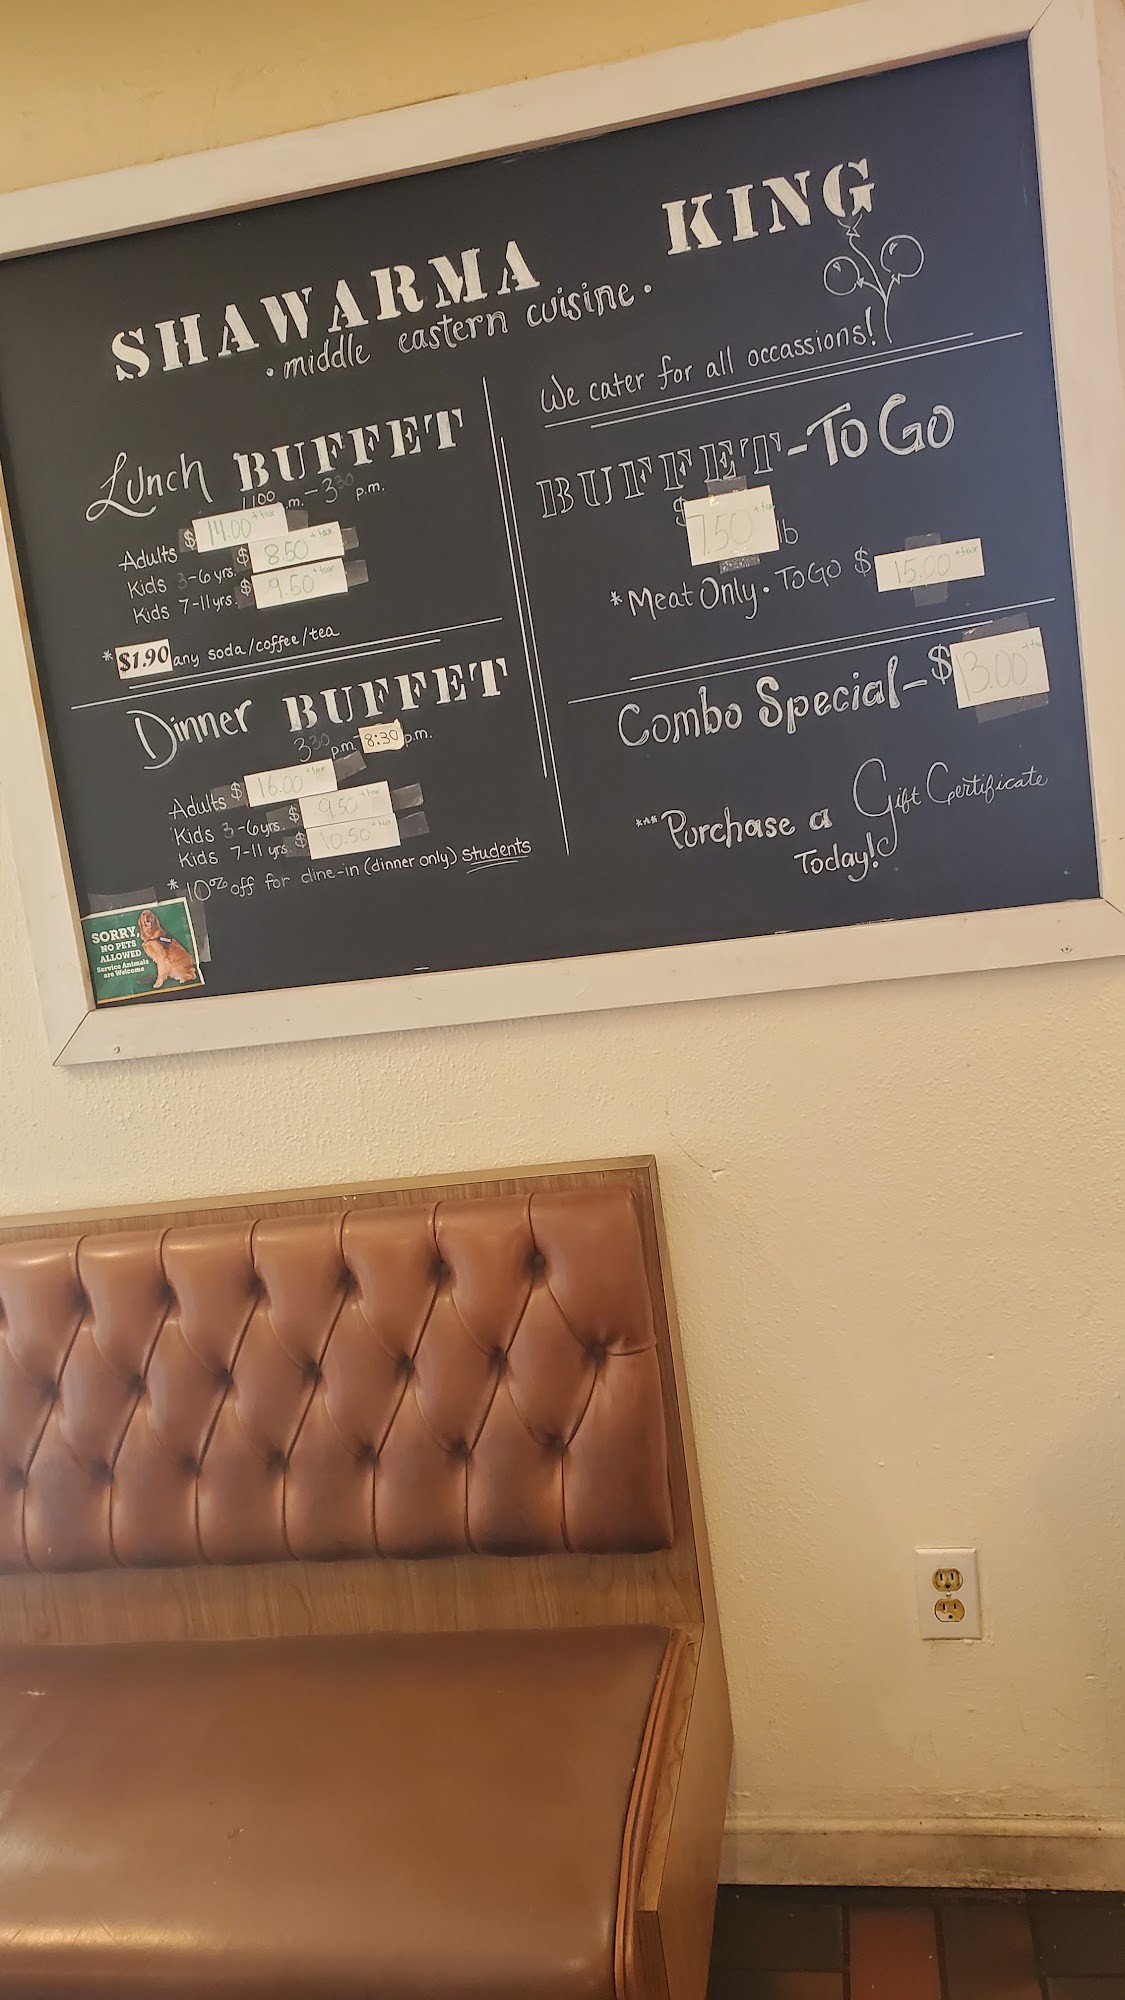 SHAWARMA KING
• middle eastern cuisine •
Lunch BUFFET
1100 .m. - 330 p.m.
Adults $ 14.00 +tax
Kids 3-6 yrs. $ 8.50 +tax
Kids 7-11 yrs. $ 9.50 +tax
* $1.90 any soda/coffee/tea
Dinner BUFFET
330 p.m. 8:30 p.m.
Adults $ 16.00 +tax
Kids 3-6 yrs. $ 9.50 +tax
Kids 7-11 yrs. $ 10.50 +tax
* 10% off for dine-in (dinner only) students
SORRY,
NO PETS
ALLOWED
Service Animals
are Welcome
We cater for all occassions!
BUFFET - TO GO
$ 7.50 +tax lb
* Meat Only • TO GO $ 15.00 +tax
Combo Special - $ 13.00 +tax
*** Purchase a Gift Certificate
Today!